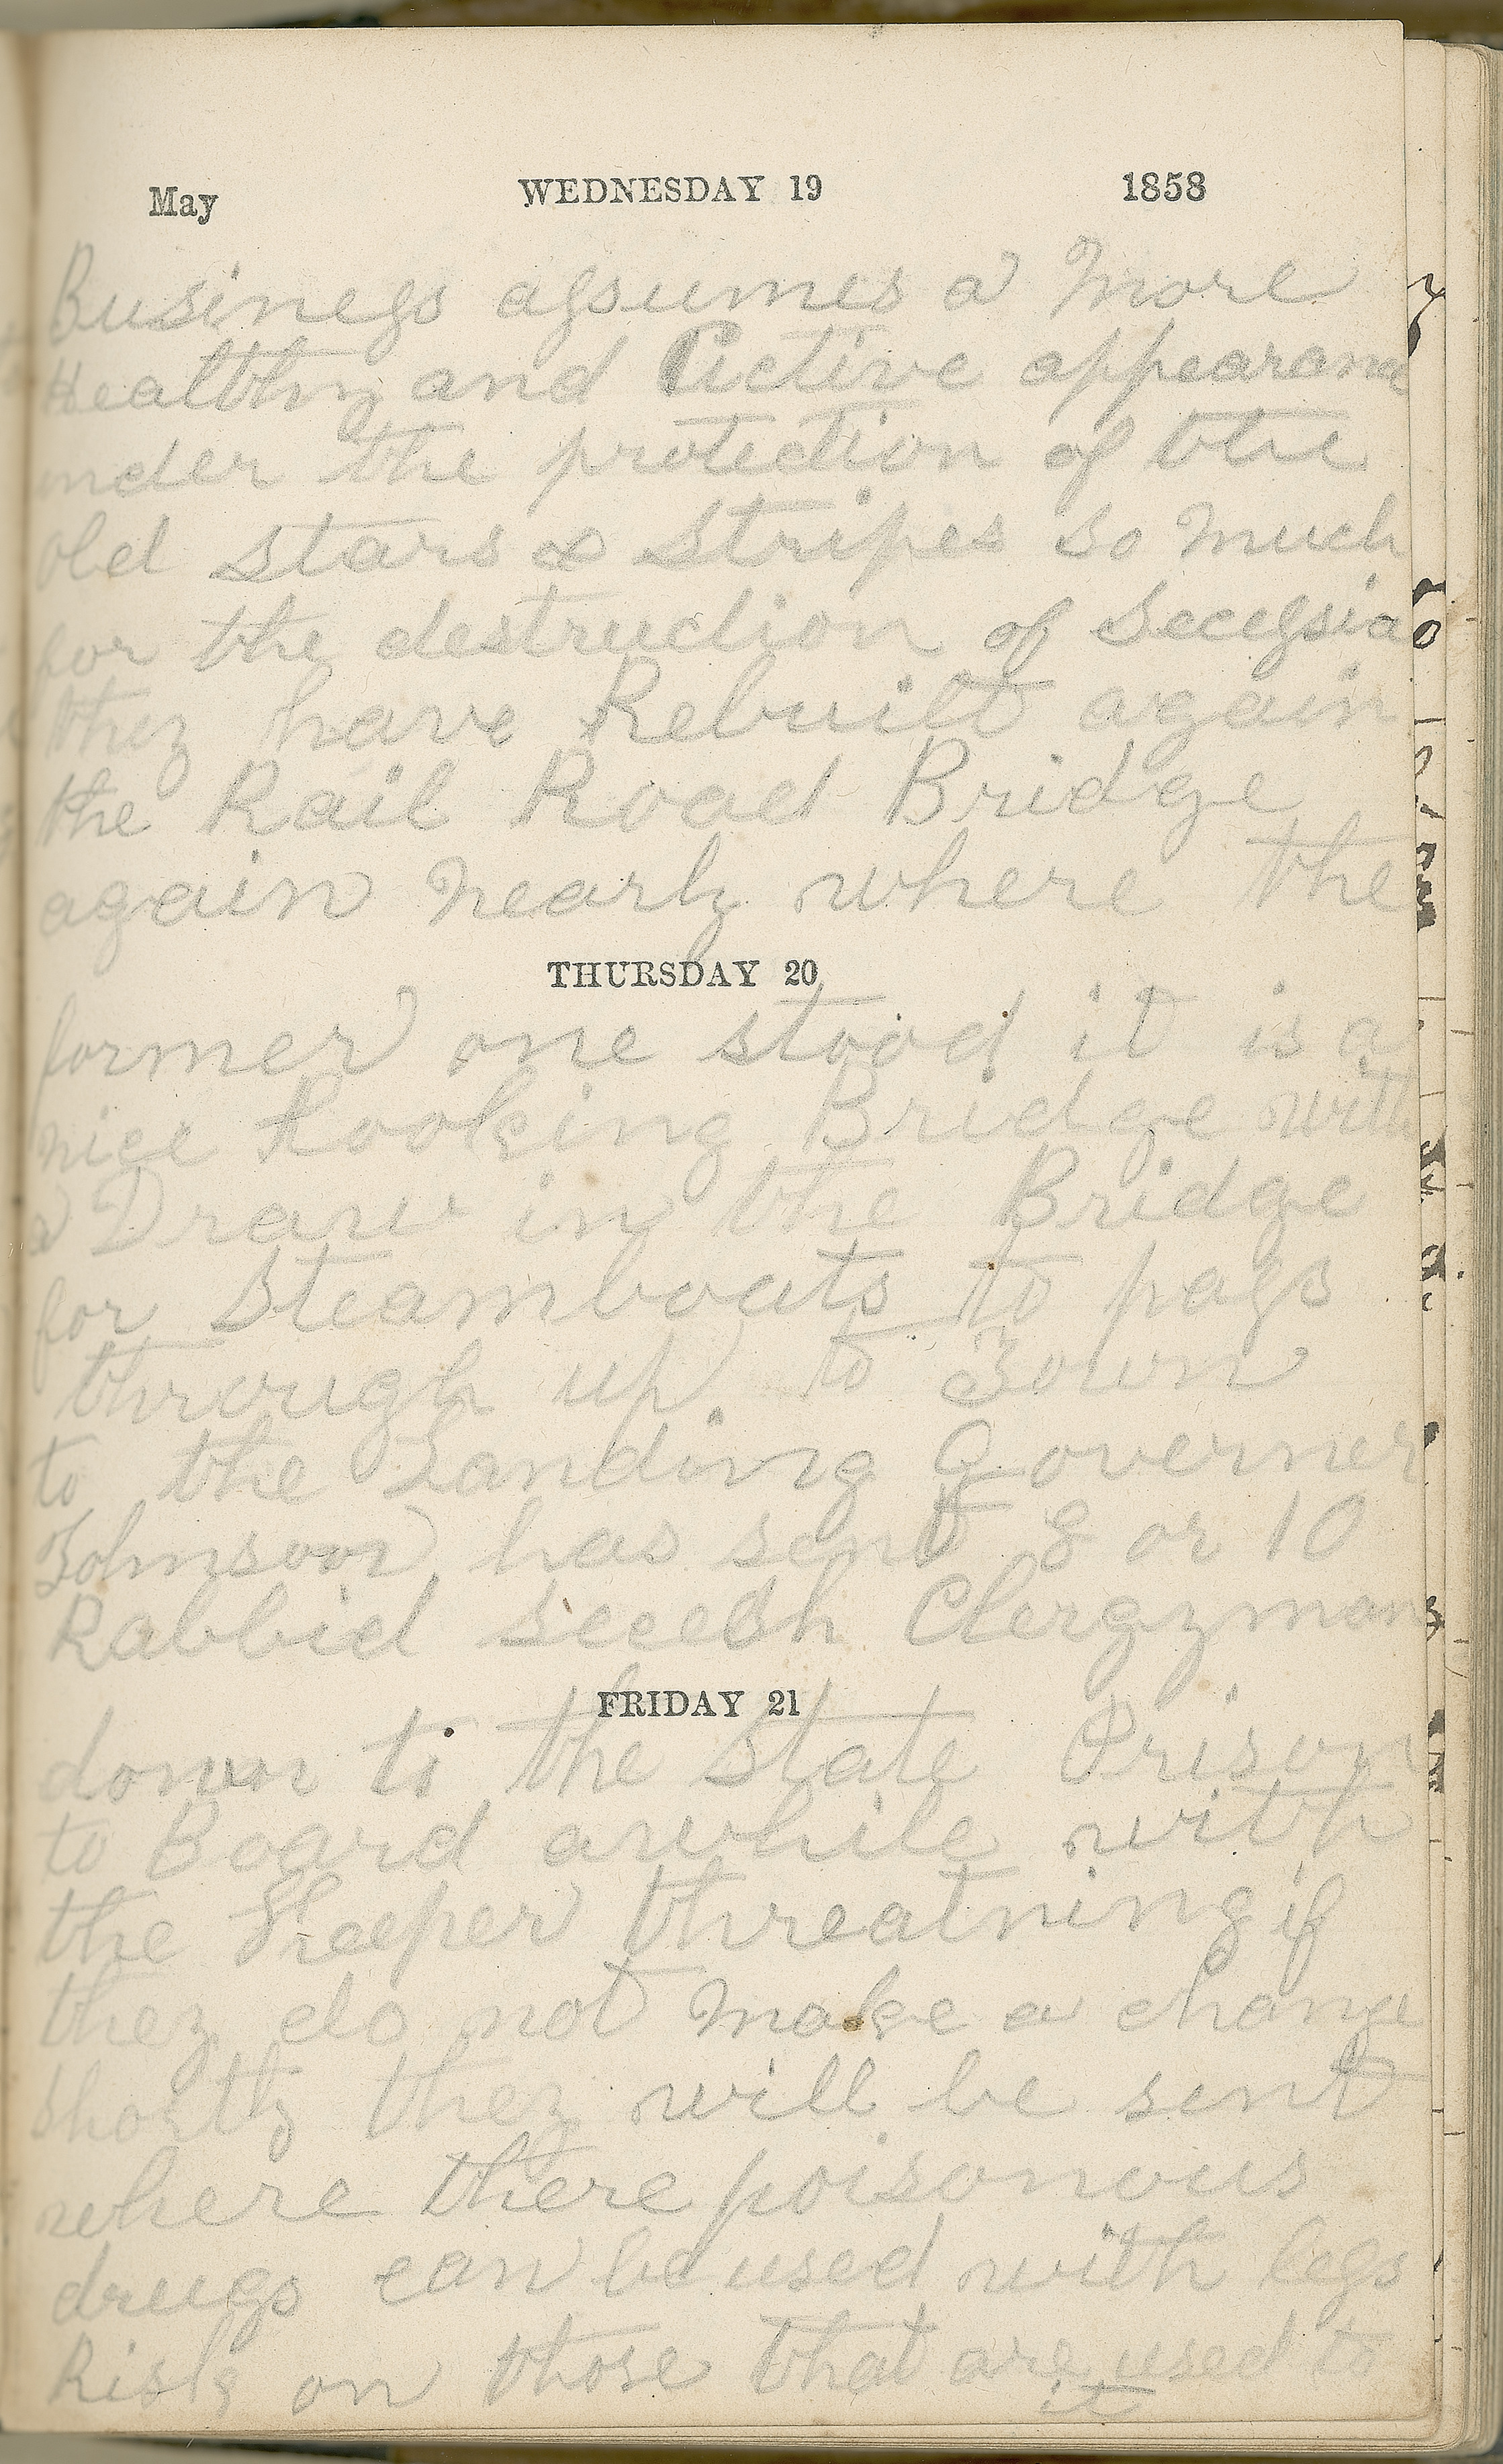 May WEDNESDAY 19 1858
Business assumes a more
Healthy and Active appearanc
under the protection of the
old stars & stripes so much
for the destruction of Secessia
they have Rebuilt again
the Rail Road Bridge
again nearly where the
THURSDAY 20
former one stood it is a
nice Looking Bridge with
a Draw in the Bridge
for Steamboats to pass
through up to Town
to the Landing Governer
Johnson has sent 8 or 10
Rabbid secesh Clergymans
FRIDAY 21
down to the State Prison
to Board awhile with
the Keeper threatning if
they do not make a change
shortly they will be sent
where there poisonous
drugs can be used with less
Risk on those that are used to
it